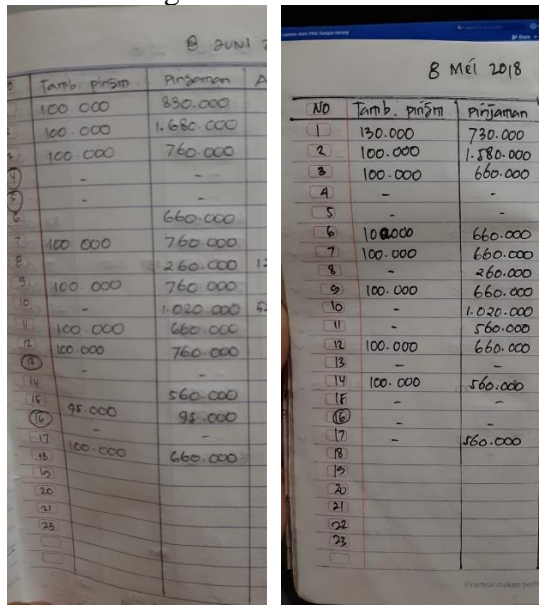 8 JUNI
Tamb. pinjm Pinjaman A
100 000 830.000
100.000 1.680.000
3 100.000 760.000
4 - -
5 - -
6 660.000
7 100 000 760.000
8 260.000
9 100 000 760.000
10 - 1.020 000
11 100.000 660.000
12 100.000 760.000
13 - -
14 560.000
15 95.000 95.000
16 -
17 100.000 660.000
18
19
20
21
23
8 Mei 2018
NO Tamb. pinjm Pinjaman
1 130.000 730.000
2 100.000 1.580.000
3 100.000 660.000
4 - -
5 - -
6 100000 660.000
7 100.000 660.000
8 - 260.000
9 100.000 660.000
10 - 1.020.000
11 - 560.000
12 100.000 660.000
13 - -
14 100.000 560.000
15 - -
16 - -
17 - 560.000
18
19
20
21
22
23
Practice makes perf